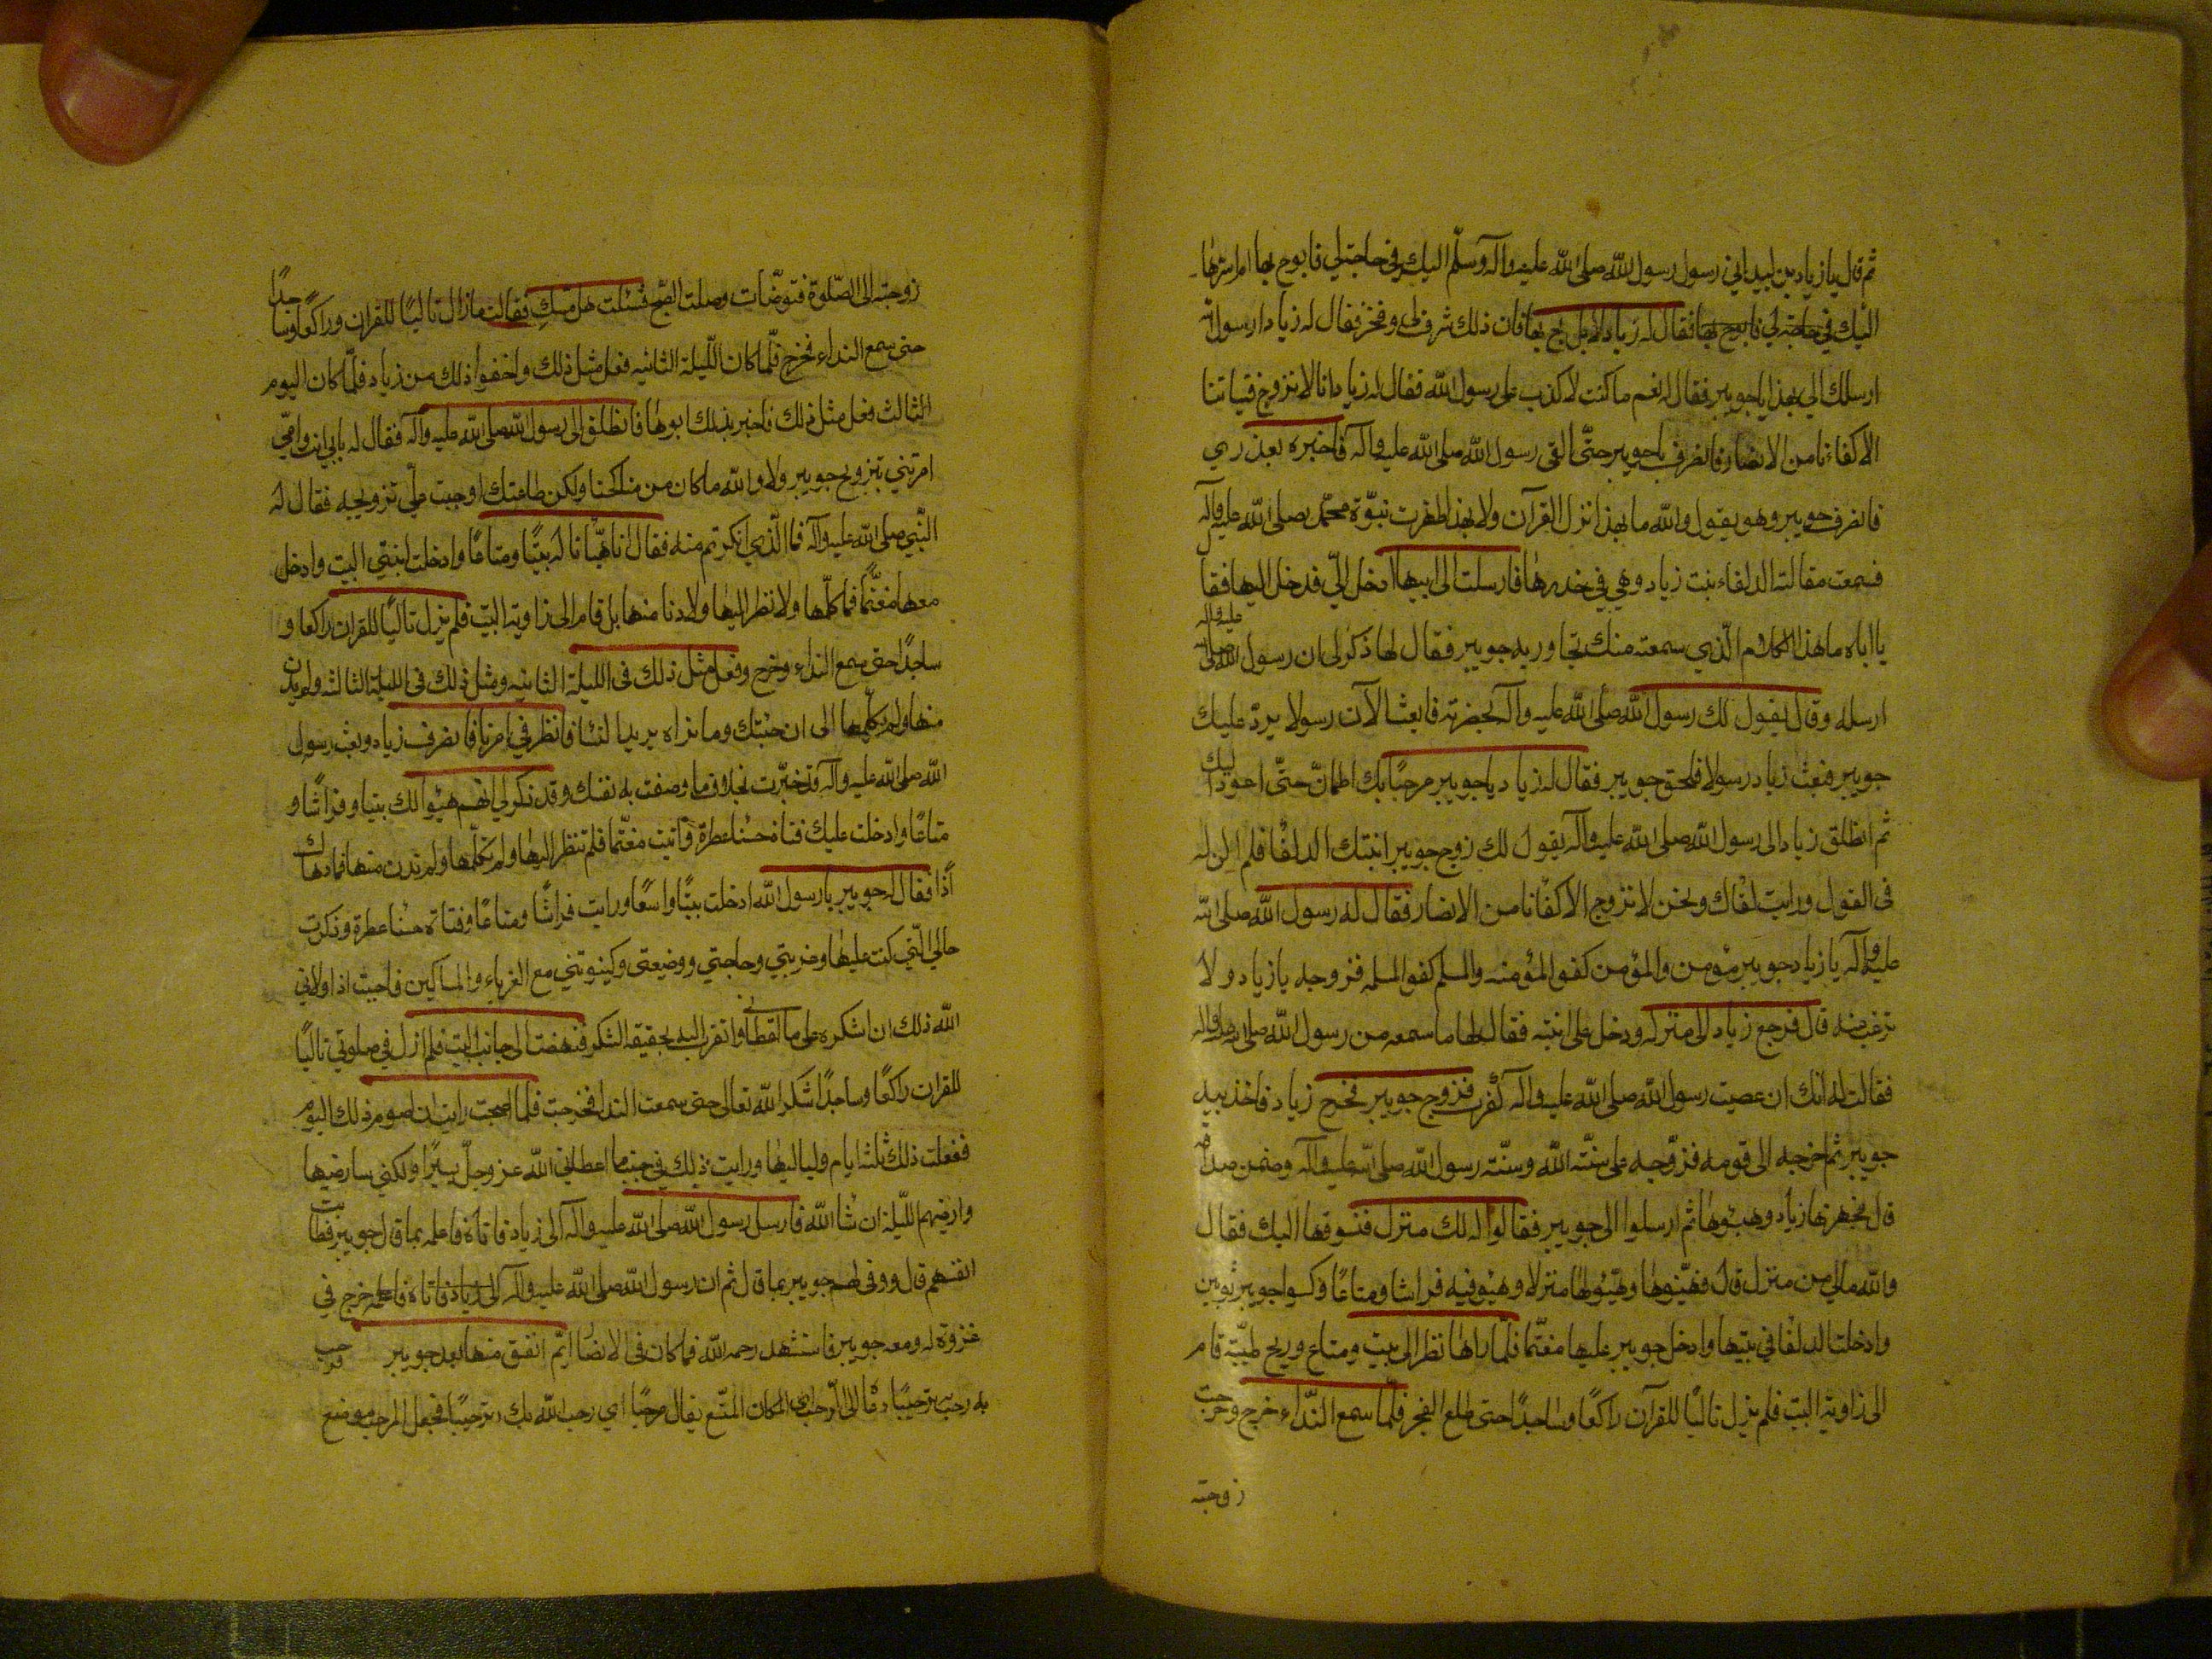 ثم قال يا زياد بن لبيد اني رسول رسول الله صلى الله عليه وآله وسلّم اليك في حاجة لي فابوح بها ام اسرها
اليك في حاجة لي فابوح بها فقال له زياد لا بل بح بها فان ذلك شرف لي وفخر فقال له زياد ارسول الله
ارسلك الي بهذا يا جويبر فقال له نعم ما كنت لاكذب على رسول الله فقال له زياد انا لا نزوج فتياتنا
الا كفاءنا من الانصار فانصرف يا جويبر حتّى القى رسول الله صلى الله عليه وآله فاخبره بعذري
فانصرف جويبر وهو يقول والله ما بهذا نزل القرآن ولا بهذا ظهرت نبوّة محمّد صلى الله عليه وآله
فسمعت مقالته الدلفاء بنت زياد وهي في خدرها فارسلت الى ابيها ادخل اليّ فدخل اليها فقال
يا اباه ما هذا الكلام الّذي سمعته منك تجاور به جويبر فقال لها ذكر لي ان رسول الله صلى الله عليه وآله
ارسله وقال يقول لك رسول الله صلى الله عليه وآله بحضرته فابعث الآن رسولا يردّ عليك
جويبر فبعث زياد رسولا فلحق جويبر فقال له زياد يا جويبر مرحبًا بك اطمانّ حتّى اعود اليك
ثم انطلق زياد الى رسول الله صلى الله عليه وآله يقول لك زوج جويبر ابنتك الدلفا فلم الن له
فى القول ورايت لقاك ونحن لا نزوج الا كفانا من الانصار فقال له رسول الله صلى الله
عليه وآله يا زياد جويبر مؤمن والمؤمن كفو المؤمنه والمسلم كفو المسلمه فزوجه يا زياد ولا
ترغب منه قال فرجع زياد الى منزله ودخل على ابنته فقال لها ما سمعه من رسول الله صلى الله عليه وآله
فقالت له انك ان عصيت رسول الله صلى الله عليه وآله كفرت فزوج جويبر فخرج زياد فاخذ بيد
جويبر ثم اخرجه الى قومه فزوّجه على سنّة الله وسنّة رسول الله صلى الله عليه وآله وضمن صداقه
قال فجهزها زياد وهيؤها ثم ارسلوا الى جويبر فقالوا له لك منزل فنسوقها اليك فقال
والله مالي من منزل قال فهيّوها وهيّؤ لها منزلا وهيّو فيه فراشا ومتاعًا وكسوا جويبر ثوبين
وادخلت الدلفا في بيتها وادخل جويبر عليها مغتّما فلمّا راها نظر الى بيت ومتاع وريح طيّبة قام
الى زاوية البيت فلم يزل تاليًا للقرآن راكعًا وساجدًا حتى طلع الفجر فلمّا سمع النّداء خرج وخرجت
زوجته
زوجته الى الصّلوة فتوضّات وصلت الصّبح فسئلت هل مسّك فقالت ما زال تاليًا للقران وراكعًا وساجدًا
حتى سمع النداء فخرج فلمّا كان اللّيلة الثانيه فعل مثل ذلك واخفوا ذلك من زياد فلمّا كان اليوم
الثالث فعل مثل ذلك فاخبر بذلك ابوها فانطلق الى رسول الله صلى الله عليه وآله فقال له بابي انت وامّي
امرتني بتزويج جويبر ولا والله ما كان من مناكحنا ولكن طاعتك اوجبت عليّ تزويجه فقال له
النّبي صلى الله عليه وآله فما الّذي انكرتم منه فقال انا هيّانا له بيتًا ومتاعًا وادخلت ابنتي البيت وادخل
معها مغتّمًا فما كلّمها ولا نظر اليها ولا دنا منها بل قام الى زاوية البيت فلم يزل تاليًا للقران راكعا و
ساجدًا حتى سمع النداء وخرج وفعل مثل ذلك فى الليلة الثانيه ومثل ذلك فى الليلة الثالثه ولم يدن
منها ولم يكلّمها الى ان جئتك وما نراه يريد النسا فانظر في امرنا فانصرف زياد وبعث رسول
الله صلى الله عليه وآله وقد ذكر لي انهم هيّوا لك بيتا وفراشًا و
متاعًا وادخلت عليك فتاة حسنا عطرة واتيت مغتّما فلم تنظر اليها ولم تكلّمها ولم تدن منها فما دهاك
اذًا فقال له جويبر يا رسول الله ادخلت بيتًا واسعًا ورايت فراشًا ومتاعًا وفتاة حسنا عطرة وذكرت
حالي الّتي كنت عليها وغربتي وحاجتي ووضيعتى وكينونتي مع الغرباء والمساكين فاحببت اذ اولاني
الله ذلك ان اشكره على ما اعطاني واتقرب اليه بحقيقة الشكر فنهضت الى جانب البيت فلم ازل في صلوتي تاليًا
للقران راكعًا وساجدًا اشكر الله تعالى حتى سمعت الندا فخرجت فلما اصبحت رايت ان اصوم ذلك اليوم
ففعلت ذلك ثلثة ايام ولياليها ورايت ذلك في جنب ما اعطاني الله عز وجلّ يسيرًا ولكني سارضيها
وارضيهم اللّيلة ان شا الله فارسل رسول الله صلى الله عليه وآله الى زياد فاتاه فاعلمه بما قال جويبر فطابت
انفسهم قال ووفى لهم جويبر بما قال ثم ان رسول الله صلى الله عليه وآله خرج في
غزوة له ومعه جويبر فاستشهد رحمه الله فما كان فى الانصار ايّم انفق منها بعد جويبر
به رحب ترحيبًا دعا الى الرحب اى المكان المتّسع يقال مرحبًا اي رحب الله بك ترحيبًا فجعل المرحب موضع